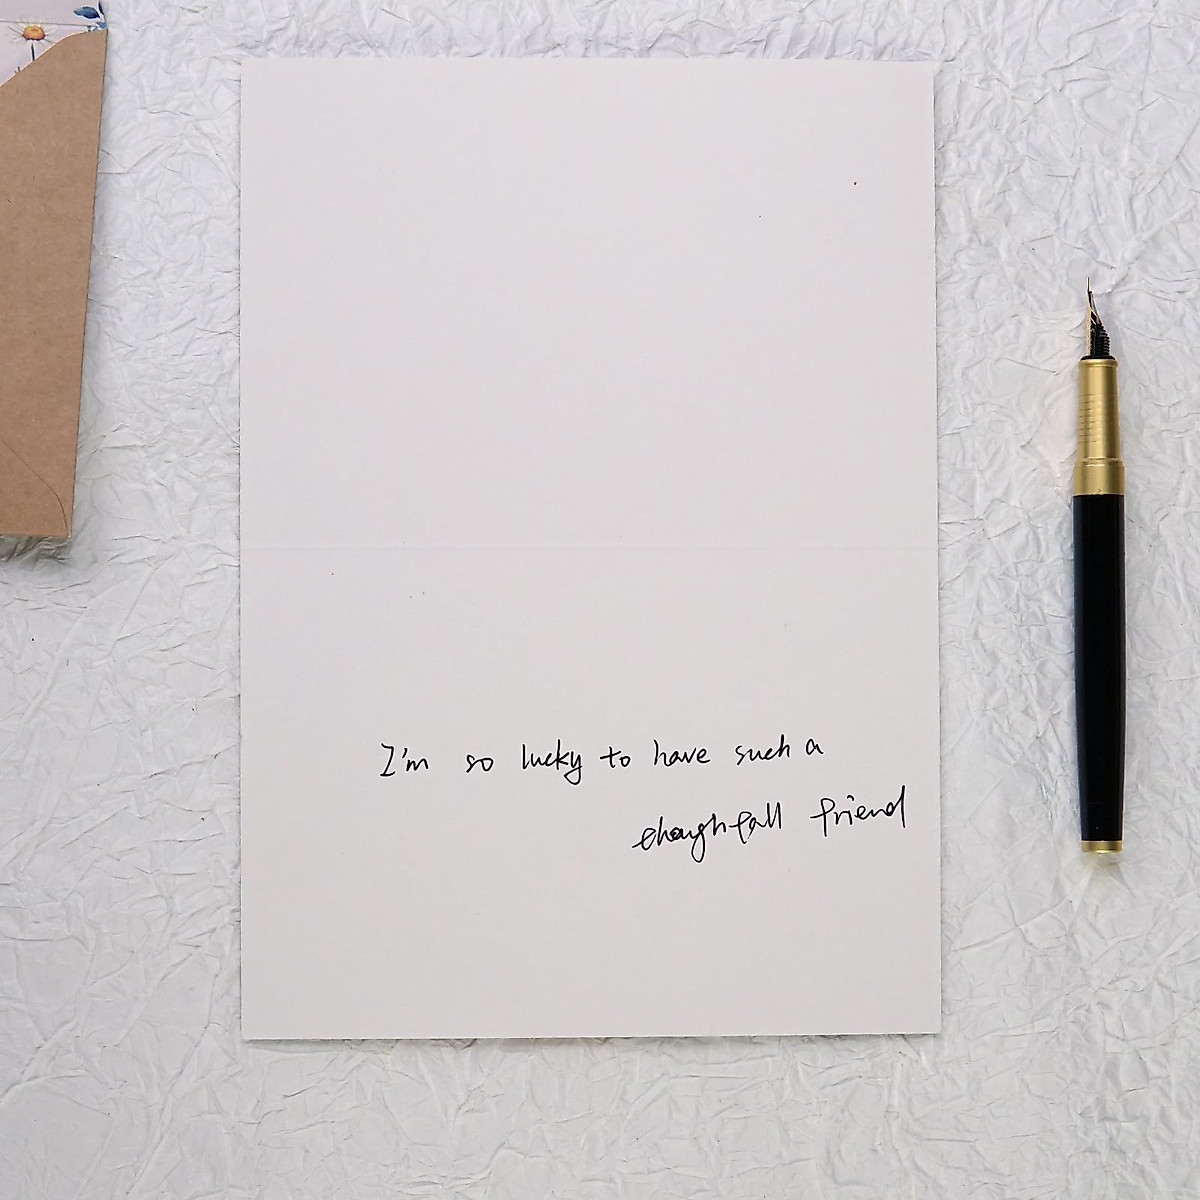 I'm so lucky to have such a
friend